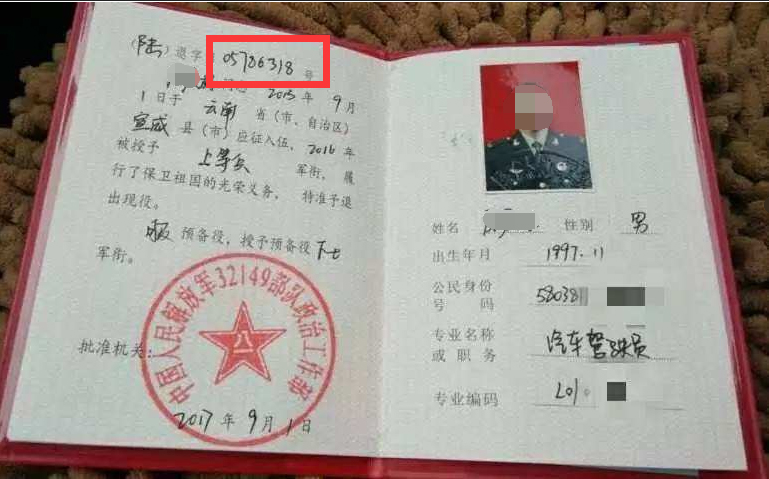 (陆)退字05786318号
2015年9月
1日于云南省(市、自治区)
宣威县(市)应征入伍,2016年
被授予上等兵军衔,履
行了保卫祖国的光荣义务,特准予退
出现役。
服预备役,授予预备役下士
军衔。
中国人民解放军32149部队政治工作部
八一
批准机关:
2017年9月1日
姓名 性别 男
出生年月 1997.11
公民身份
号码 58038
专业名称
或职务 汽车驾驶员
专业编码 201